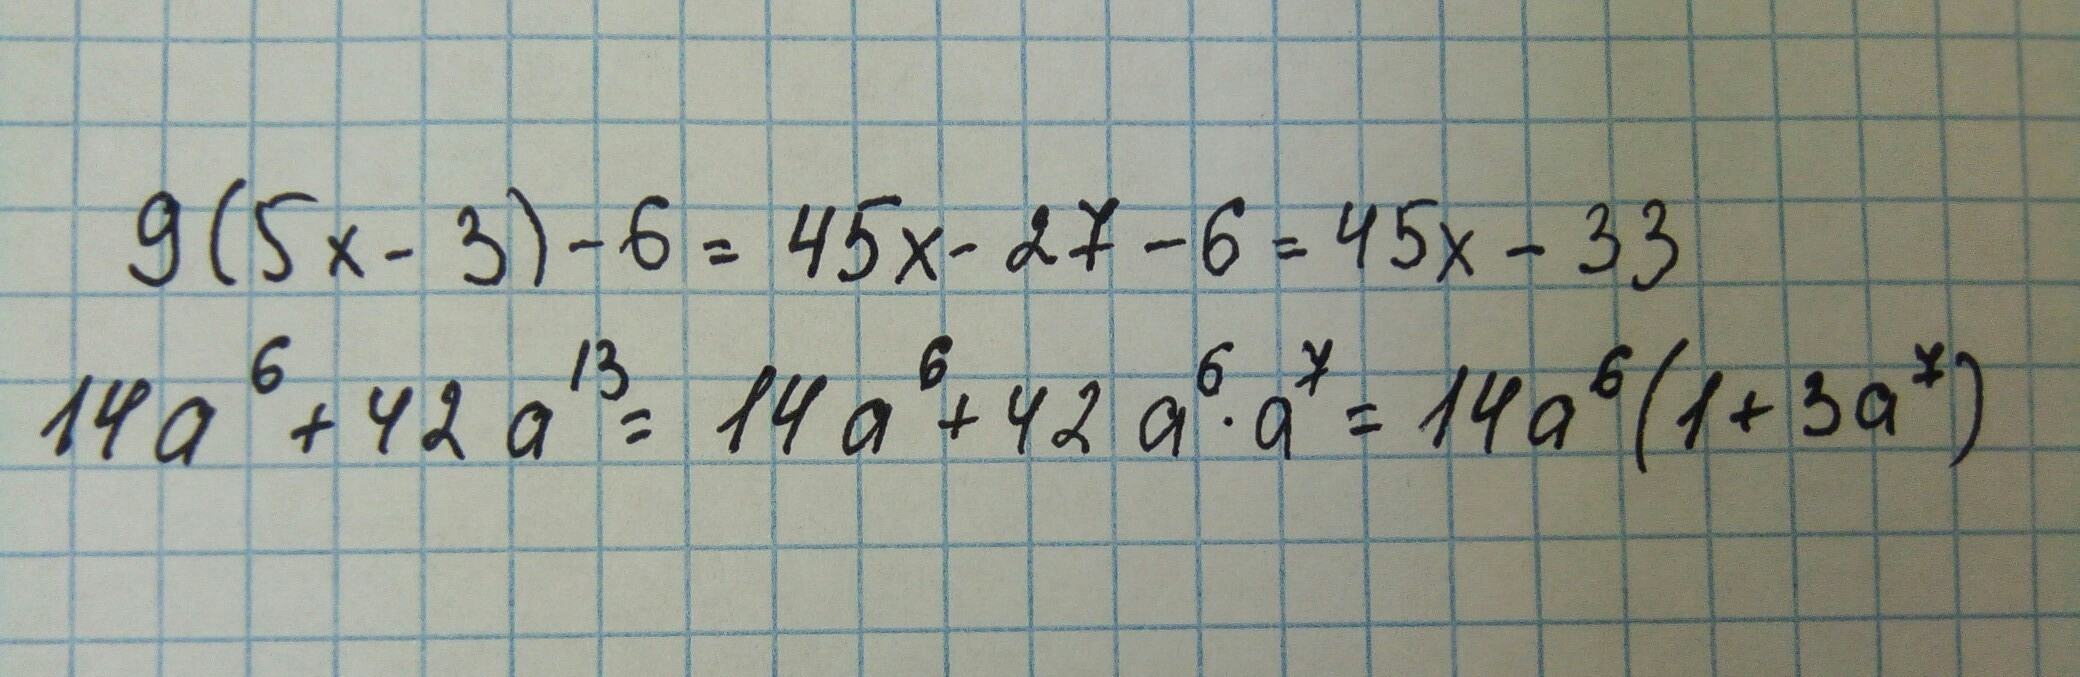 9(5x - 3) - 6 = 45x - 27 - 6 = 45x - 33
14a⁶ + 42a¹³ = 14a⁶ + 42a⁶ · a⁷ = 14a⁶(1 + 3a⁷)